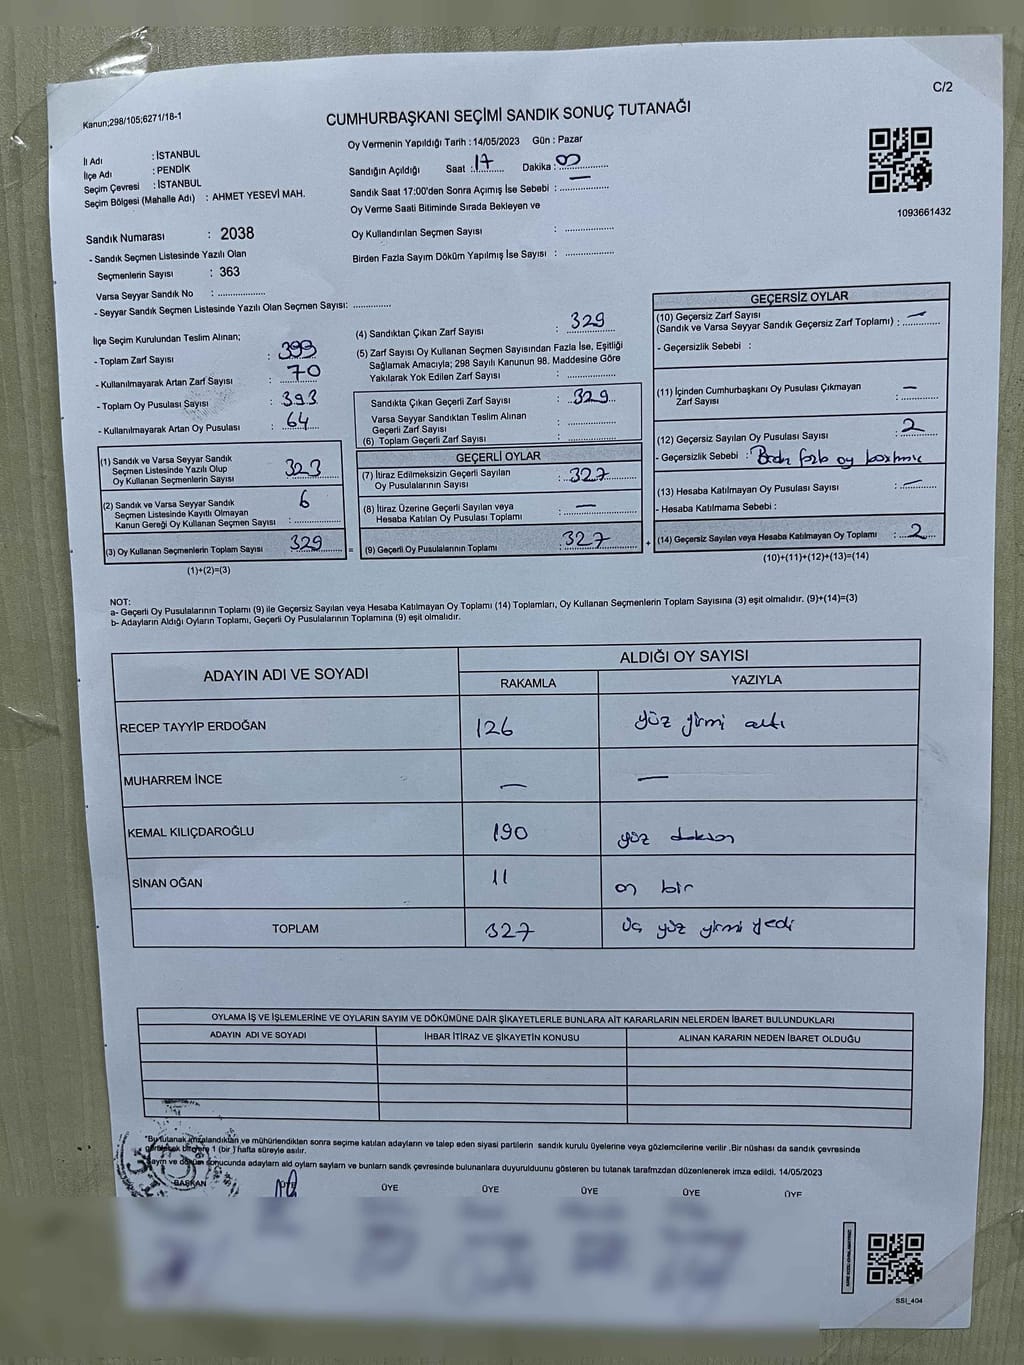 C/2
Kanun;298/105;6271/18-1
CUMHURBAŞKANI SEÇİMİ SANDIK SONUÇ TUTANAĞI
1093661432
İl Adı : İSTANBUL
İlçe Adı : PENDİK
Seçim Çevresi : İSTANBUL
Seçim Bölgesi (Mahalle Adı) : AHMET YESEVİ MAH.
Oy Vermenin Yapıldığı Tarih : 14/05/2023 Gün : Pazar
Sandığın Açıldığı Saat : 17 Dakika : 00
Sandık Saat 17:00'den Sonra Açımış İse Sebebi : —
Oy Verme Saati Bitiminde Sırada Bekleyen ve
Oy Kullandırılan Seçmen Sayısı :
Birden Fazla Sayım Döküm Yapılmış İse Sayısı :
Sandık Numarası : 2038
- Sandık Seçmen Listesinde Yazılı Olan
Seçmenlerin Sayısı : 363
Varsa Seyyar Sandık No :
- Seyyar Sandık Seçmen Listesinde Yazılı Olan Seçmen Sayısı:
İlçe Seçim Kurulundan Teslim Alınan;
- Toplam Zarf Sayısı : 399
- Kullanılmayarak Artan Zarf Sayısı : 70
- Toplam Oy Pusulası Sayısı : 393
- Kullanılmayarak Artan Oy Pusulası : 64
(1) Sandık ve Varsa Seyyar Sandık
Seçmen Listesinde Yazılı Olup
Oy Kullanan Seçmenlerin Sayısı : 323
(2) Sandık ve Varsa Seyyar Sandık
Seçmen Listesinde Kayıtlı Olmayan
Kanun Gereği Oy Kullanan Seçmen Sayısı : 6
(3) Oy Kullanan Seçmenlerin Toplam Sayısı : 329
(1)+(2)=(3)
(4) Sandıktan Çıkan Zarf Sayısı : 329
(5) Zarf Sayısı Oy Kullanan Seçmen Sayısından Fazla İse, Eşitliği
Sağlamak Amacıyla; 298 Sayılı Kanunun 98. Maddesine Göre
Yakılarak Yok Edilen Zarf Sayısı :
Sandıkta Çıkan Geçerli Zarf Sayısı : 329
Varsa Seyyar Sandıktan Teslim Alınan
Geçerli Zarf Sayısı :
(6) Toplam Geçerli Zarf Sayısı :
GEÇERLİ OYLAR
(7) İtiraz Edilmeksizin Geçerli Sayılan
Oy Pusulalarının Sayısı : 327
(8) İtiraz Üzerine Geçerli Sayılan veya
Hesaba Katılan Oy Pusulası Toplamı : —
= (9) Geçerli Oy Pusulalarının Toplamı : 327
GEÇERSİZ OYLAR
(10) Geçersiz Zarf Sayısı
(Sandık ve Varsa Seyyar Sandık Geçersiz Zarf Toplamı) : —
- Geçersizlik Sebebi :
(11) İçinden Cumhurbaşkanı Oy Pusulası Çıkmayan
Zarf Sayısı : —
(12) Geçersiz Sayılan Oy Pusulası Sayısı : 2
- Geçersizlik Sebebi : fazla oy
(13) Hesaba Katılmayan Oy Pusulası Sayısı : —
- Hesaba Katılmama Sebebi :
+ (14) Geçersiz Sayılan veya Hesaba Katılmayan Oy Toplamı : 2
(10)+(11)+(12)+(13)=(14)
NOT:
a- Geçerli Oy Pusulalarının Toplamı (9) ile Geçersiz Sayılan veya Hesaba Katılmayan Oy Toplamı (14) Toplamları, Oy Kullanan Seçmenlerin Toplam Sayısına (3) eşit olmalıdır. (9)+(14)=(3)
b- Adayların Aldığı Oyların Toplamı, Geçerli Oy Pusulalarının Toplamına (9) eşit olmalıdır.
ADAYIN ADI VE SOYADI ALDIĞI OY SAYISI
RAKAMLA YAZIYLA
RECEP TAYYİP ERDOĞAN 126 yüz yirmi altı
MUHARREM İNCE — —
KEMAL KILIÇDAROĞLU 190 yüz doksan
SİNAN OĞAN 11 on bir
TOPLAM 327 üç yüz yirmi yedi
OYLAMA İŞ VE İŞLEMLERİNE VE OYLARIN SAYIM VE DÖKÜMÜNE DAİR ŞİKAYETLERLE BUNLARA AİT KARARLARIN NELERDEN İBARET BULUNDUKLARI
ADAYIN ADI VE SOYADI İHBAR İTİRAZ VE ŞİKAYETİN KONUSU ALINAN KARARIN NEDEN İBARET OLDUĞU
"Bu tutanak imzalandıktan ve mühürlendikten sonra seçime katılan adayların ve talep eden siyasi partilerin sandık kurulu üyelerine veya gözlemcilerine verilir .Bir nüshası da sandık çevresinde
1 (bir ) hafta süreyle asılır.
Sayım ve döküm sonucunda adayların ald oyların sayıların ve bunların sandık çevresinde bulunanlara duyurulduunu gösteren bu tutanak tarafımzdan düzenlenerek imza edildi. 14/05/2023
BAŞKAN ÜYE ÜYE ÜYE ÜYE ÜYE
SSI_404